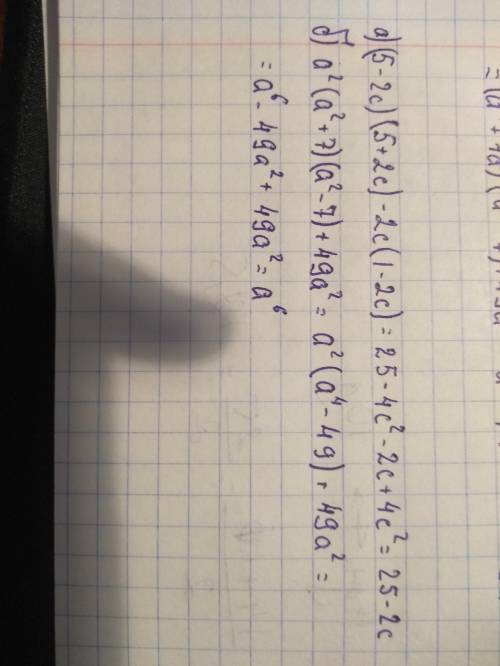 а) (5-2c)(5+2c)-2c(1-2c)=25-4c²-2c+4c²=25-2c
б) a²(a²+7)(a²-7)+49a²=a²(a⁴-49)+49a²=
=a⁶-49a²+49a²=a⁶